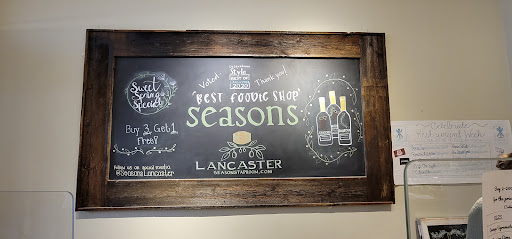 Sweet
Spring
Special
Buy 3, Get 1
Free!
Follow us on social media
@SeasonsLancaster
Voted
Style
BEST OF
2020
Thank you!
'BEST FOODIE SHOP'
seasons
LANCASTER
SEASONSTAPROOM.COM
Celebrate
Restaurant Week